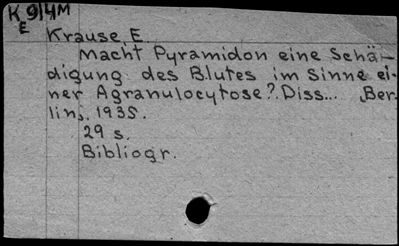 K 9/4M
E
Krause E.
Macht Pyramidon eine Schä-
digung des Blutes im Sinne ei-
ner Agranulocytose? Diss... Ber-
lin, 1935.
29 s.
Bibliogr.